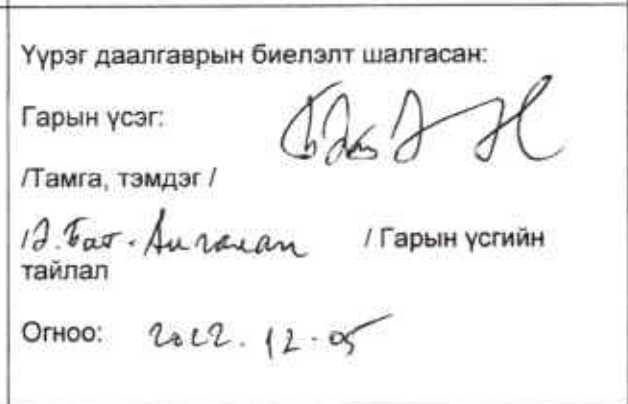 Үүрэг даалгаврын биелэлт шалгасан:
Гарын үсэг:
/Тамга, тэмдэг /
/Д. Бат-Амгалан / Гарын үсгийн
тайлал
Огноо: 2022.12.05